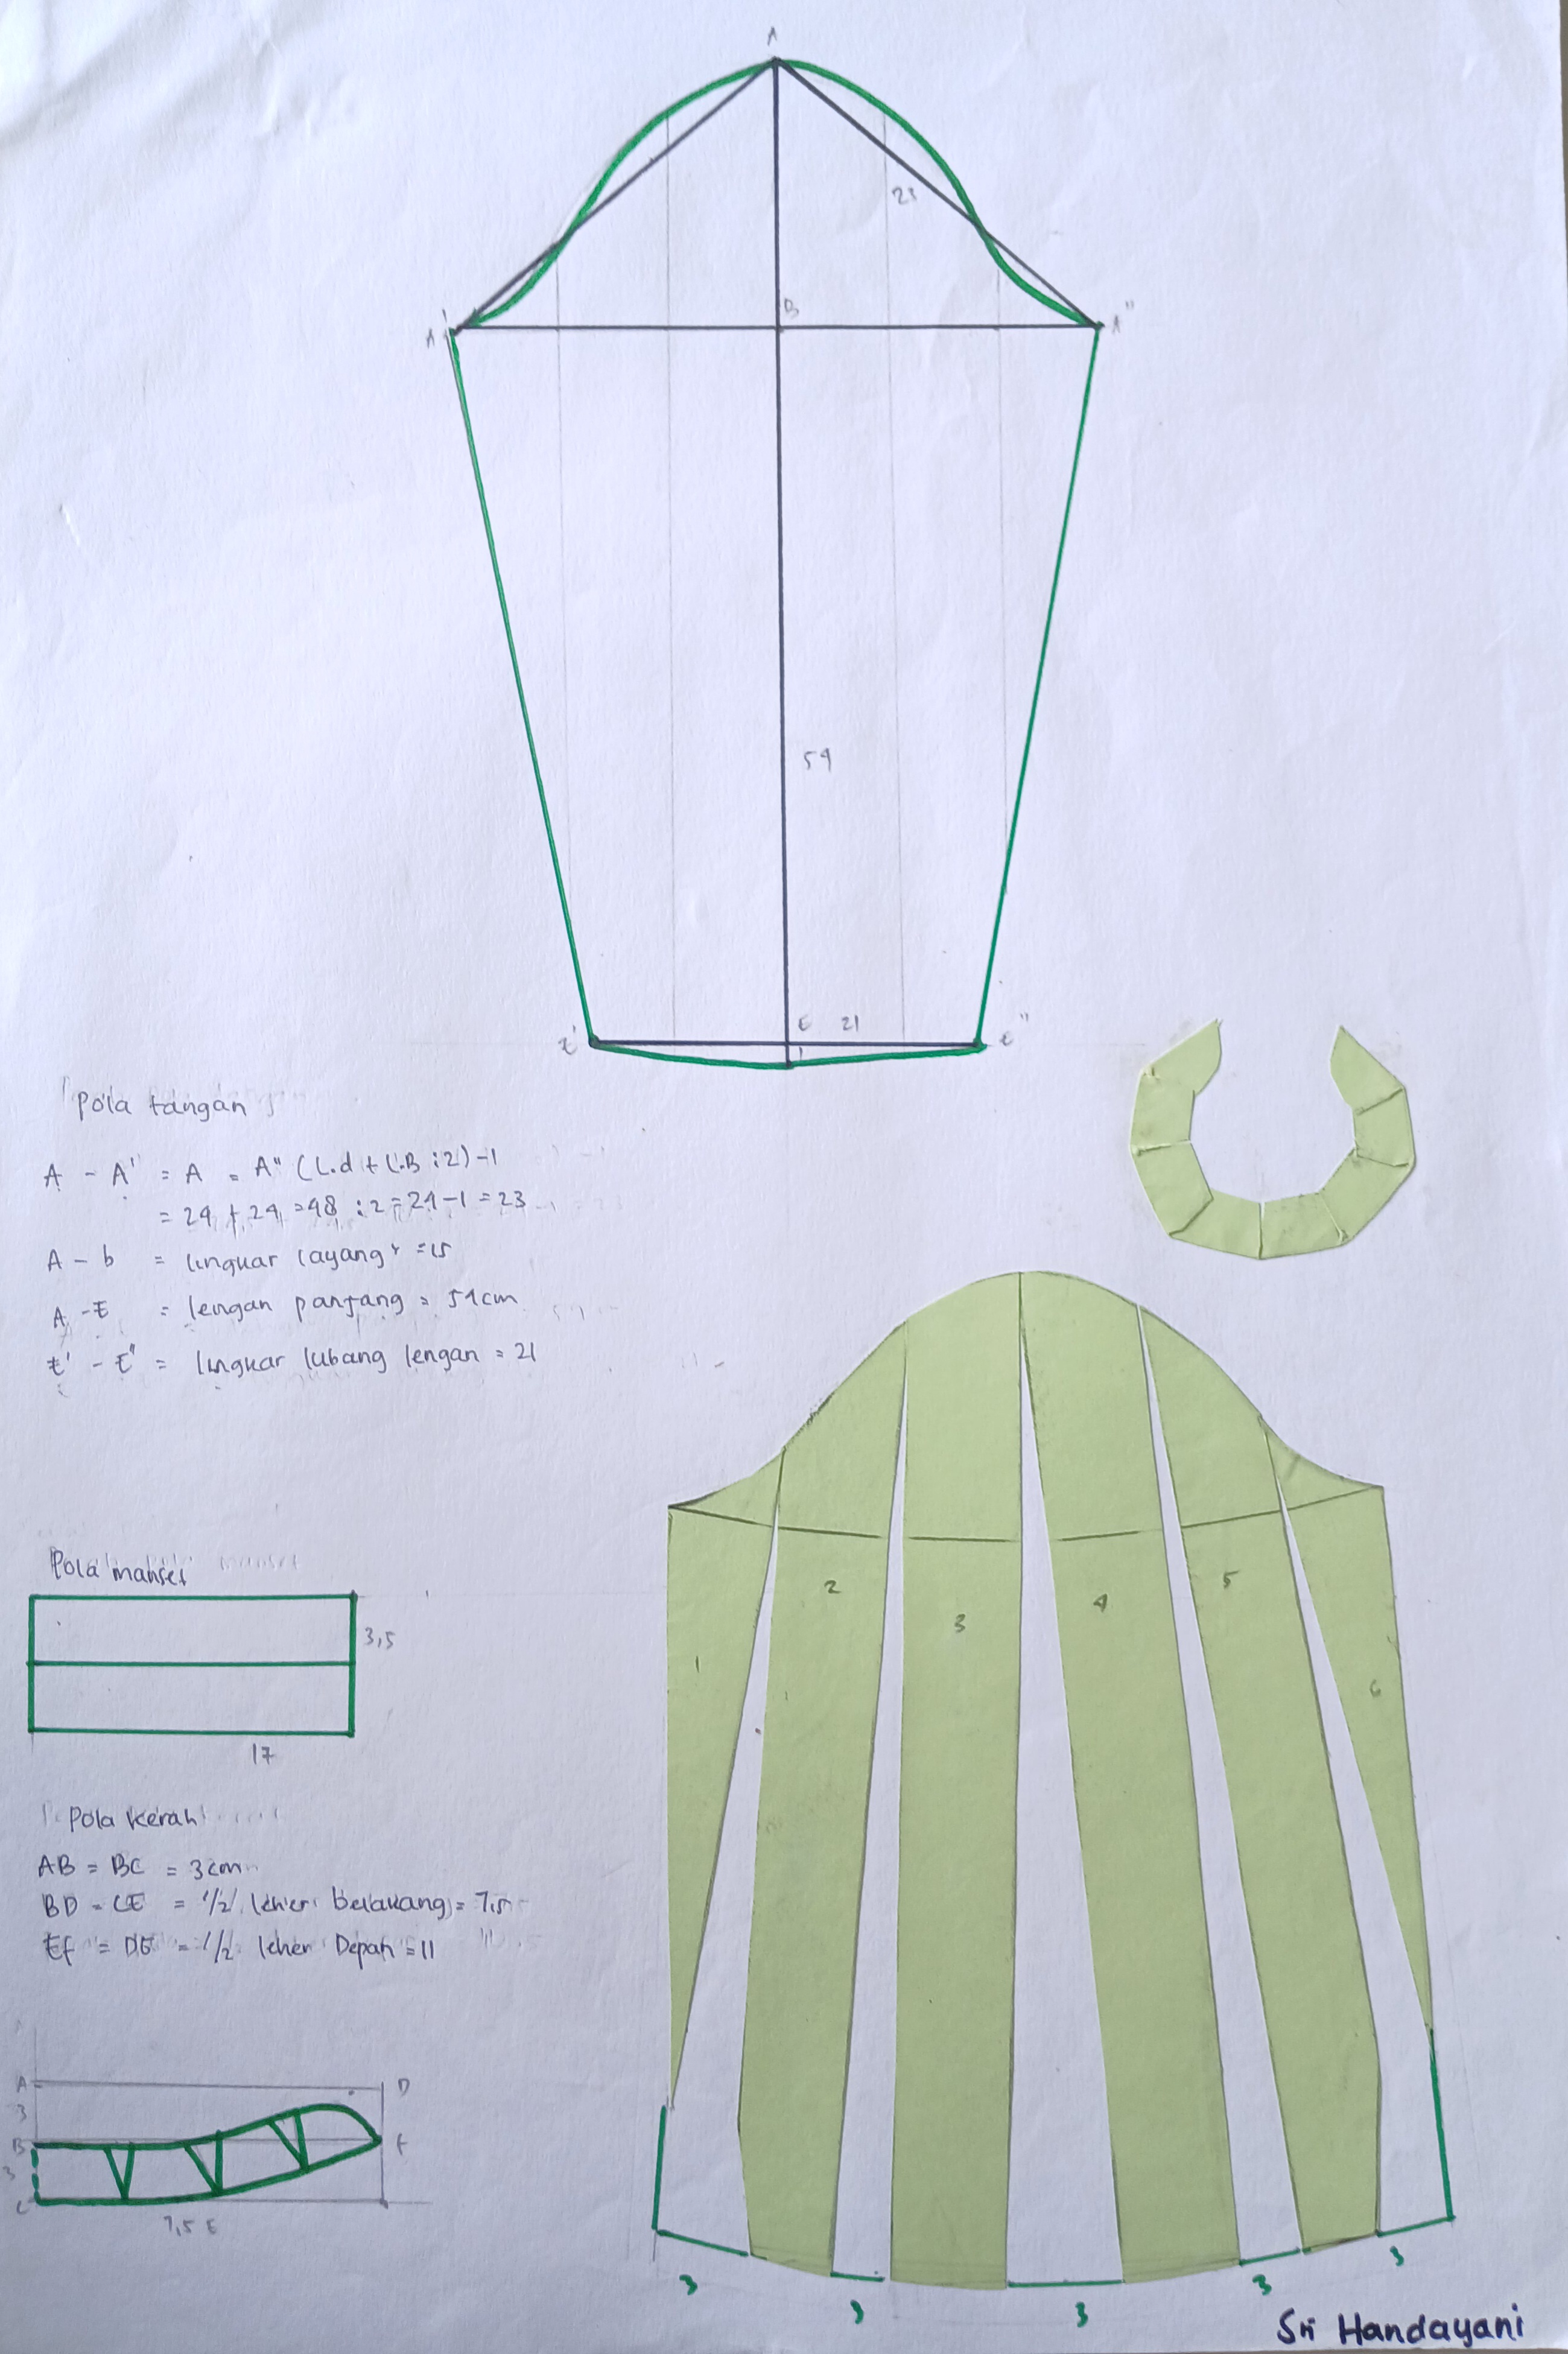 A
23
B
A'
A"
54
E 21
E'
E"
Pola tangan
A - A' = A - A" (L.d + L.B : 2) -1
= 24 + 24 = 48 : 2 = 24 - 1 = 23
A - b = lingkar layang² = 15
A - E = lengan panjang = 54cm
E' - E" = lingkar lubang lengan = 21
Pola manset
3,5
17
Pola kerah
AB = BC = 3cm
BD = CE = 1/2 leher belakang = 7,5
Ef = DE = 1/2 leher Depan = 11
A
D
3
B
F
3
C
7,5 E
1
2
3
4
5
6
3
3
3
3
3
Sri Handayani